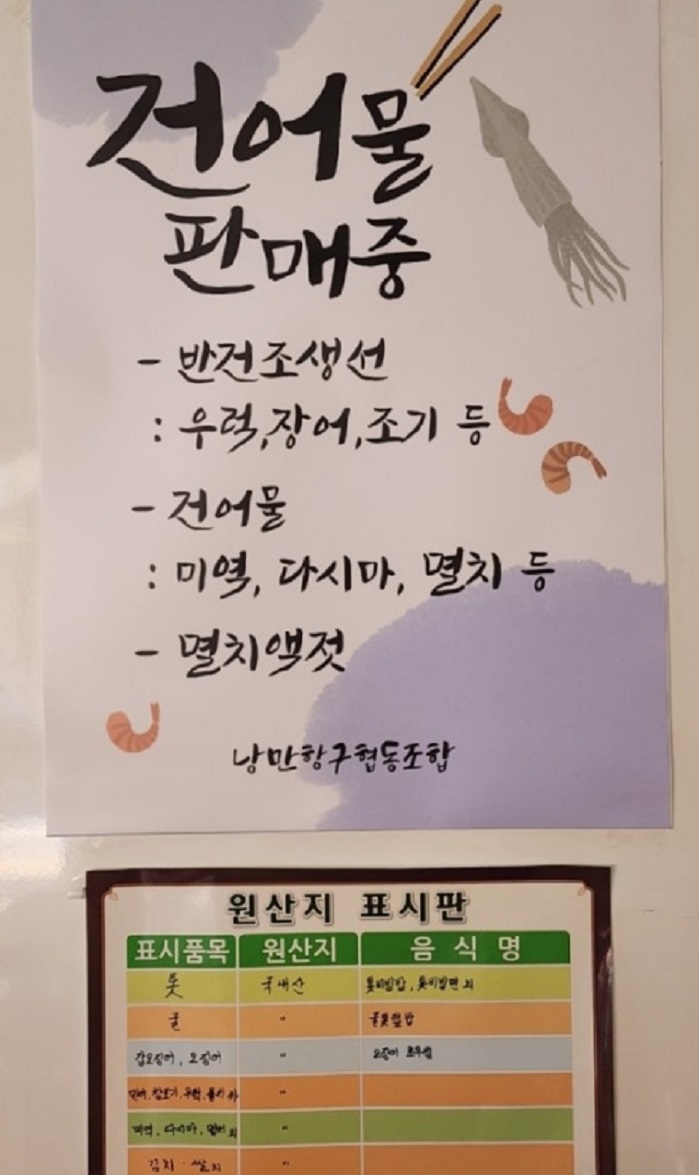 건어물
판매중
- 반건조생선
: 우럭,장어,조기 등
- 건어물
: 미역, 다시마, 멸치 등
- 멸치액젓
낭만항구협동조합
원산지 표시판
표시품목 원산지 음식명
톳 국내산 톳비빔밥, 톳비빔면 외
굴 〃
갑오징어, 오징어 〃 오징어
〃
미역, 다시마, 〃
김치·쌀 〃